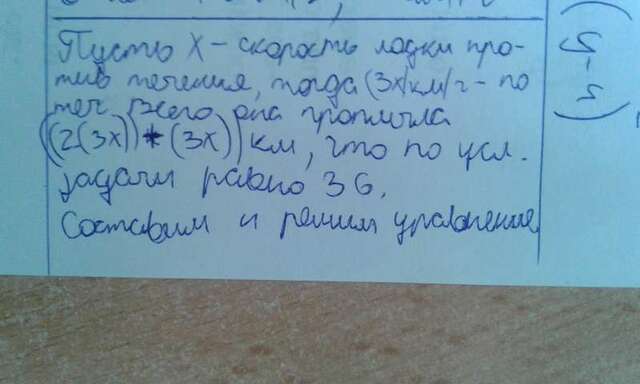 Пусть х - скорость лодки про-
тив течения, тогда (3х)км/ч - по
теч. Всего она проплыла
((2(3х)) * (3х)) км, что по усл.
задачи равно 36.
Составим и решим уравнение